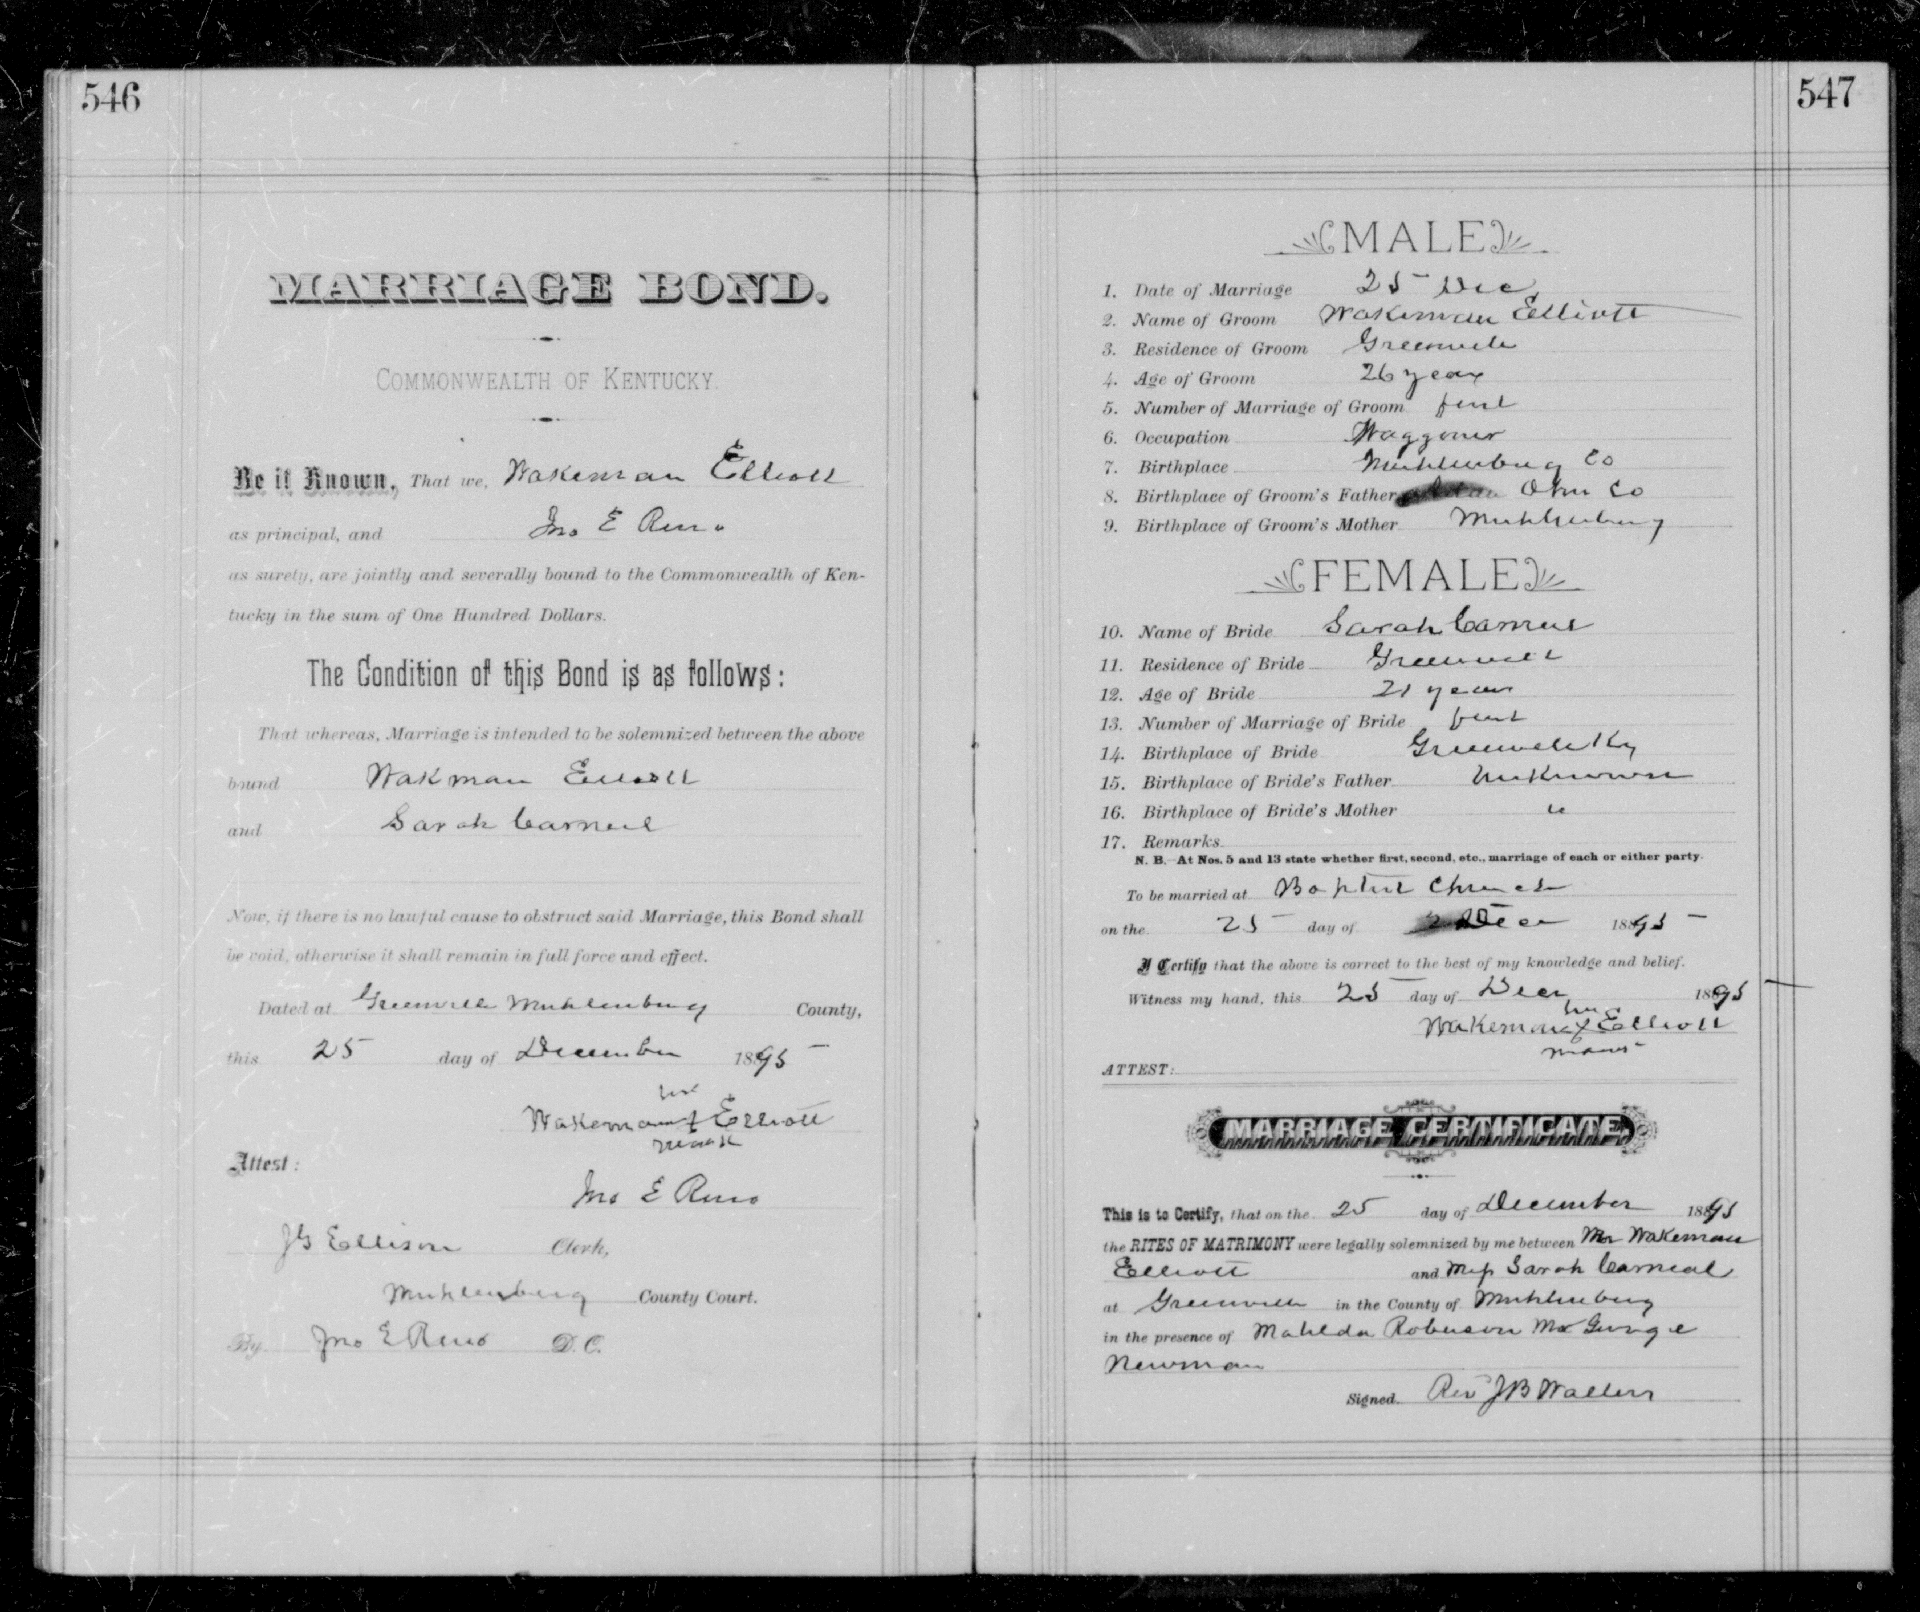 546
MARRIAGE BOND.
COMMONWEALTH OF KENTUCKY.
Be it Known, That we, Wakeman Elliott
as principal, and Jno E Reno
as surety, are jointly and severally bound to the Commonwealth of Ken-
tucky in the sum of One Hundred Dollars.
The Condition of this Bond is as follows:
That whereas, Marriage is intended to be solemnized between the above
bound Wakman Elliott
and Sarah Carneil
Now, if there is no lawful cause to obstruct said Marriage, this Bond shall
be void, otherwise it shall remain in full force and effect.
Dated at Greenville Muhlenburg County,
this 25 day of December 1895
his
Wakeman X Elliott
mark
Attest:
Jno E Reno
JG Ellison Clerk,
Muhlenburg County Court.
By Jno E Reno D. C.
547
MALE
1. Date of Marriage 25 Dec
2. Name of Groom Wakeman Elliott
3. Residence of Groom Greenville
4. Age of Groom 26 years
5. Number of Marriage of Groom first
6. Occupation Waggoner
7. Birthplace Muhlenburg Co
8. Birthplace of Groom's Father Ohio Co
9. Birthplace of Groom's Mother Muhlenburg
FEMALE
10. Name of Bride Sarah Carneil
11. Residence of Bride Greenville
12. Age of Bride 21 years
13. Number of Marriage of Bride first
14. Birthplace of Bride Greenville Ky
15. Birthplace of Bride's Father Unknown
16. Birthplace of Bride's Mother "
17. Remarks
N. B. At Nos. 5 and 13 state whether first, second, etc., marriage of each or either party.
To be married at Baptist Church
on the 25 day of Dec 1895
I Certify that the above is correct to the best of my knowledge and belief.
Witness my hand, this 25 day of Dec 1895
his
Wakeman X Elliott
mark
ATTEST:
MARRIAGE CERTIFICATE.
This is to Certify, that on the 25 day of December 1895
the RITES OF MATRIMONY were legally solemnized by me between Mr Wakeman
Elliott and Miss Sarah Carneal
at Greenville in the County of Muhlenburg
in the presence of Mahelda Roberson Mr George
Newman
Signed. Rev JB Walters